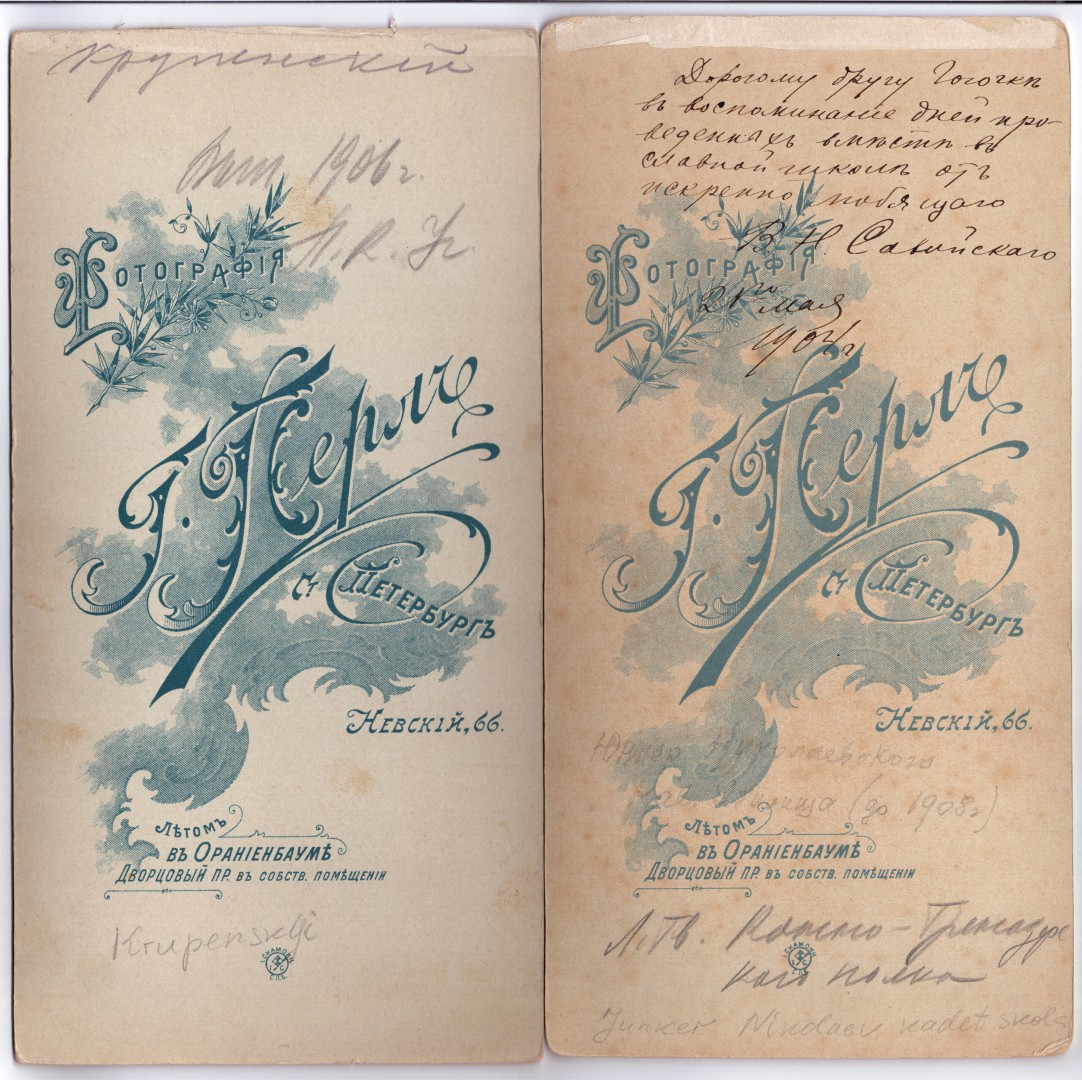 Крупенскій
Вып. 1906 г.
Фотографія
Г. Перлъ
Ст Петербургъ
Невскій, 66.
Лѣтомъ
въ Ораніенбаумѣ
Дворцовый пр. въ собств. помѣщеніи
Krupenskji
I. СКАМОНИ
С.П.Б.
Дорогому другу Гогочкѣ
въ воспоминаніе дней про-
веденныхъ вмѣстѣ въ
славной школѣ отъ
искренно любящаго
В. Н. Савойскаго
21го мая
1904 г
Фотографія
Г. Перлъ
Ст Петербургъ
Невскій, 66.
Юнкер Николаевского
училища (до 1908 г)
Лѣтомъ
въ Ораніенбаумѣ
Дворцовый пр. въ собств. помѣщеніи
Л. Гв. Конно-Гренадерс
каго полка
I. СКАМОНИ
С.П.Б.
Junker Nikolaev kadet skola